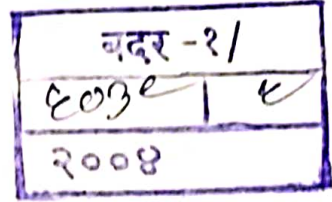 बदर -१/
८०३९ | ८
२००४